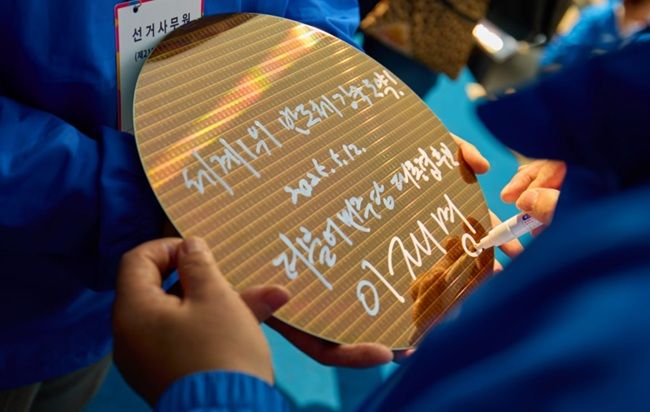 선거사무원
(제21
세계1위 반도체 강국 도약!
2025. 5. 12.
더불어민주당 대통령후보
이재명